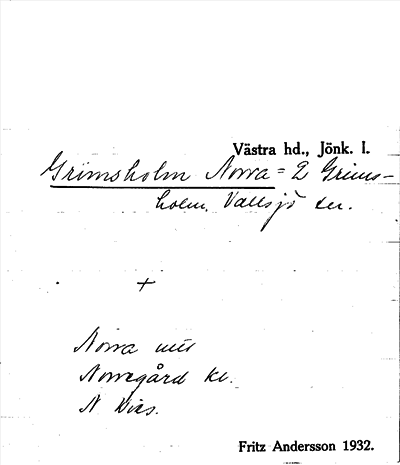 Västra hd., Jönk. l.
Grimsholm Norra = 2 Grims-
holm, Vallsjö sn.
+
Norra
Norregård kl.
N
Fritz Andersson 1932.